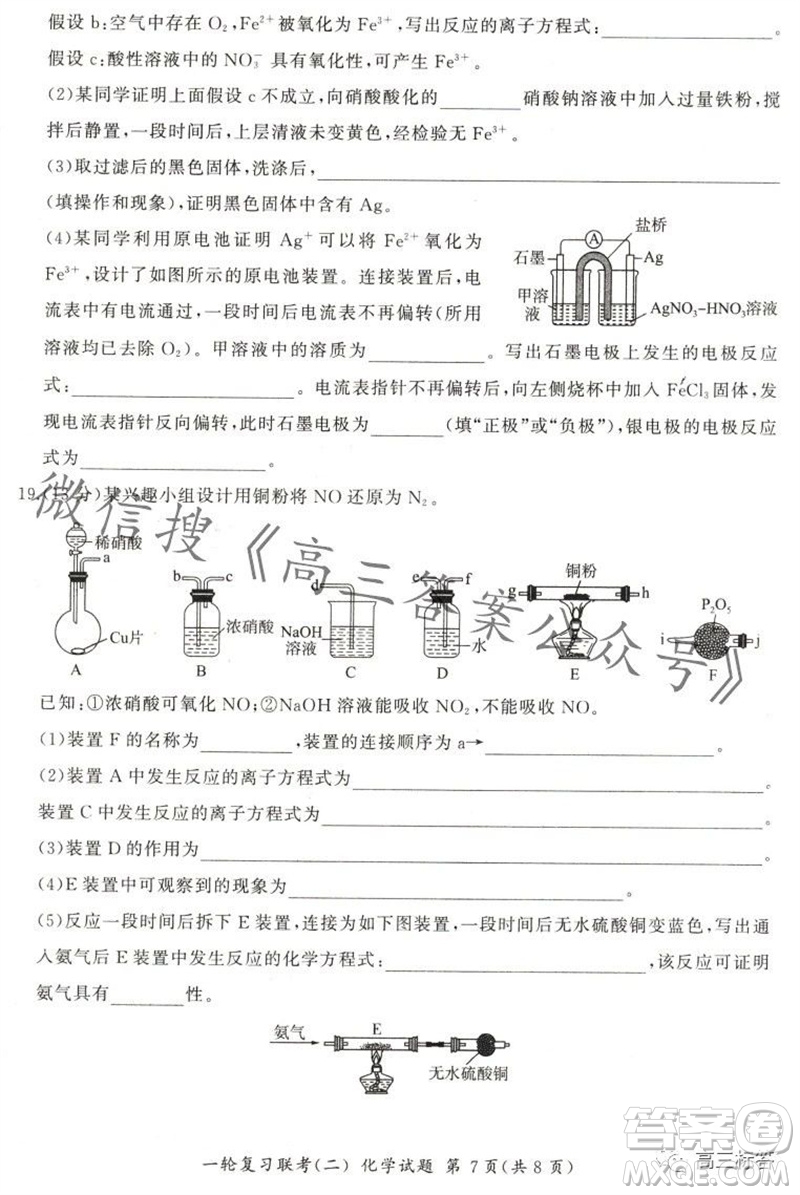 假设b:空气中存在O₂,Fe²⁺被氧化为Fe³⁺,写出反应的离子方程式:____________。
假设c:酸性溶液中的NO₃⁻具有氧化性,可产生Fe³⁺。
(2)某同学证明上面假设c不成立,向硝酸酸化的________硝酸钠溶液中加入过量铁粉,搅
拌后静置,一段时间后,上层清液未变黄色,经检验无Fe³⁺。
(3)取过滤后的黑色固体,洗涤后,____________________
(填操作和现象),证明黑色固体中含有Ag。
(4)某同学利用原电池证明Ag⁺可以将Fe²⁺氧化为
Fe³⁺,设计了如图所示的原电池装置。连接装置后,电
流表中有电流通过,一段时间后电流表不再偏转(所用
溶液均已去除O₂)。甲溶液中的溶质为________。写出石墨电极上发生的电极反应
式:____________。电流表指针不再偏转后,向左侧烧杯中加入FeCl₃固体,发
现电流表指针反向偏转,此时石墨电极为________(填“正极”或“负极”),银电极的电极反应
式为____________。
盐桥
A
石墨
Ag
甲溶
液
AgNO₃-HNO₃溶液
19.(13分)某兴趣小组设计用铜粉将NO还原为N₂。
稀硝酸
a
Cu片
A
b
c
浓硝酸
B
d
NaOH
溶液
C
e
f
水
D
g
铜粉
h
E
P₂O₅
i
j
F
已知:①浓硝酸可氧化NO;②NaOH溶液能吸收NO₂,不能吸收NO。
(1)装置F的名称为________,装置的连接顺序为a→____________________。
(2)装置A中发生反应的离子方程式为____________________,
装置C中发生反应的离子方程式为____________________。
(3)装置D的作用为____________________。
(4)E装置中可观察到的现象为____________________。
(5)反应一段时间后拆下E装置,连接为如下图装置,一段时间后无水硫酸铜变蓝色,写出通
入氨气后E装置中发生反应的化学方程式:____________________,该反应可证明
氨气具有________性。
氨气
E
无水硫酸铜
一轮复习联考(二) 化学试题 第7页(共8页)
微信搜《高三答案公众号》
答案圈
高三标答